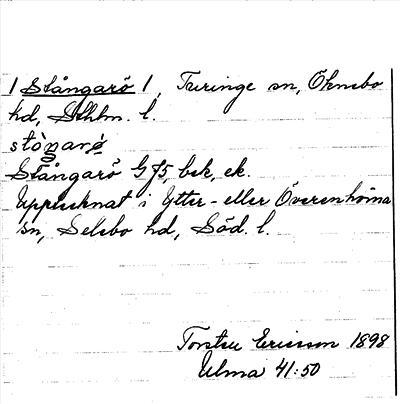 / Stångarö /, Turinge sn, Öknebo
hd, Sthlm. l.
stòŋarø̀
Stångarö G 75, bek, ek.
Upptecknat i Ytter- eller Överenhörna
sn, Selebo hd, Söd. l.
Torsten Ericsson 1898
Ulma 41:50